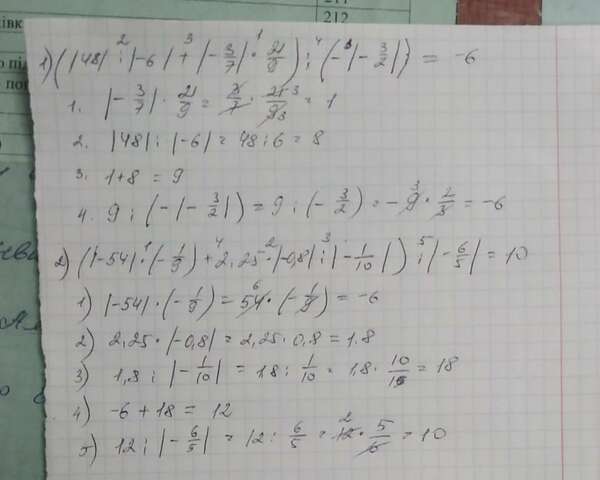 212
1) (|48| : |-6| + |-3/7| · 21/9) : (-|-3/2|) = -6
1. |-3/7| · 21/9 = 3/7 · 21/9 = 1
2. |48| : |-6| = 48 : 6 = 8
3. 1+8 = 9
4. 9 : (-|-3/2|) = 9 : (-3/2) = -9 · 2/3 = -6
2) (|-54| · (-1/9) + 2,25 · |-0,8| : |-1/10|) : |-6/5| = 10
1) |-54| · (-1/9) = 54 · (-1/9) = -6
2) 2,25 · |-0,8| = 2,25 · 0,8 = 1,8
3) 1,8 : |-1/10| = 1,8 : 1/10 = 1,8 · 10/1 = 18
4) -6 + 18 = 12
5) 12 : |-6/5| = 12 : 6/5 = 12 · 5/6 = 10